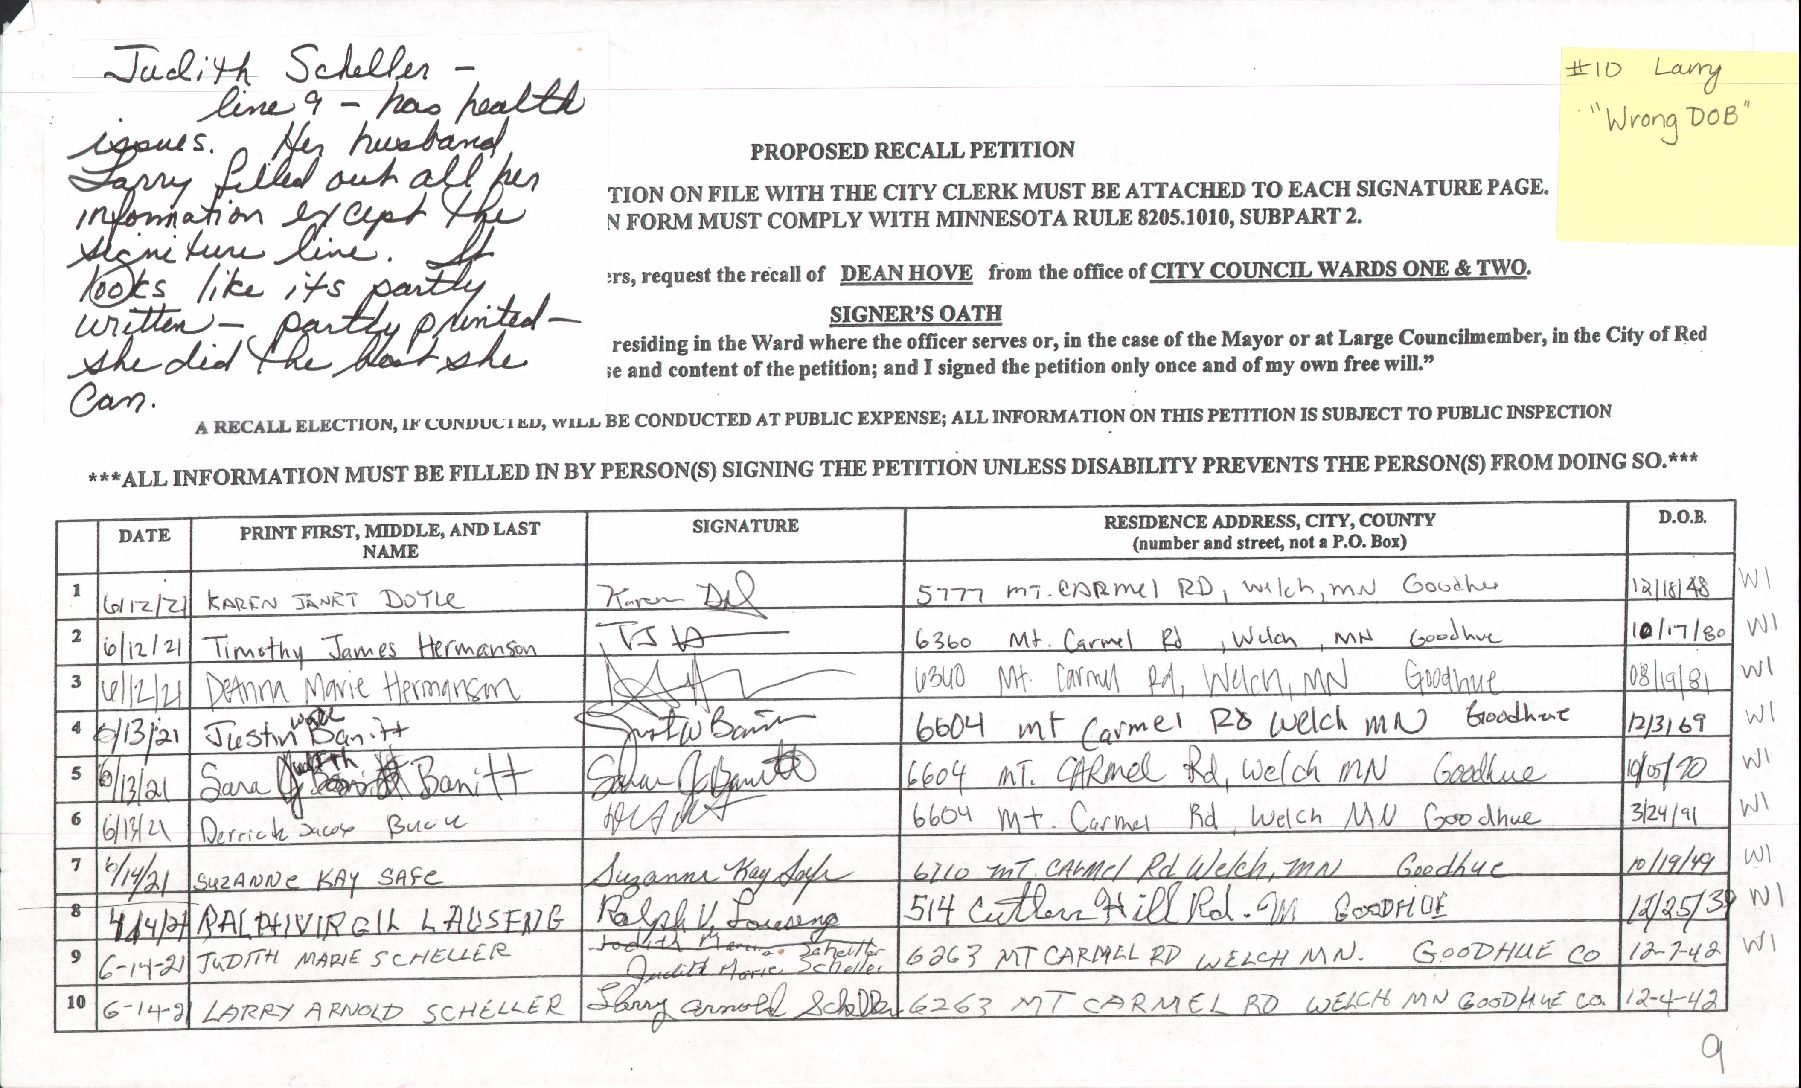 Judith Scheller –
line 9 – has health
issues. Her husband
Larry filled out all her
information except the
signiture line. It
looks like its partly
written – partly printed –
she did the best she
can.
#10 Larry
"Wrong DOB"
PROPOSED RECALL PETITION
TION ON FILE WITH THE CITY CLERK MUST BE ATTACHED TO EACH SIGNATURE PAGE.
N FORM MUST COMPLY WITH MINNESOTA RULE 8205.1010, SUBPART 2.
ers, request the recall of DEAN HOVE from the office of CITY COUNCIL WARDS ONE & TWO.
SIGNER'S OATH
residing in the Ward where the officer serves or, in the case of the Mayor or at Large Councilmember, in the City of Red
se and content of the petition; and I signed the petition only once and of my own free will."
A RECALL ELECTION, IF CONDUCTED, WILL BE CONDUCTED AT PUBLIC EXPENSE; ALL INFORMATION ON THIS PETITION IS SUBJECT TO PUBLIC INSPECTION
***ALL INFORMATION MUST BE FILLED IN BY PERSON(S) SIGNING THE PETITION UNLESS DISABILITY PREVENTS THE PERSON(S) FROM DOING SO.***
DATE PRINT FIRST, MIDDLE, AND LAST NAME SIGNATURE RESIDENCE ADDRESS, CITY, COUNTY (number and street, not a P.O. Box) D.O.B.
1 6/12/21 KAREN JANET DOYLE Karen 5777 MT. CARMEL RD, Welch, MN Goodhue 12/18/48 W1
2 6/12/21 Timothy James Hermanson TJ H 6360 Mt. Carmel Rd, Welch, MN Goodhue 10/17/80 W1
3 6/12/21 DeAnna Marie Hermanson 6360 Mt. Carmel Rd, Welch, MN Goodhue 08/19/81 W1
4 6/13/21 Justin Banitt Just W Banitt 6604 Mt Carmel Rd Welch MN Goodhue 12/3/69 W1
5 6/13/21 Sara Judith Banitt Sara J. Banitt 6604 MT. CARMEL Rd, Welch MN Goodhue 10/05/70 W1
6 6/13/21 Derrick Jacob 6604 Mt. Carmel Rd Welch MN Goodhue 3/24/91 W1
7 6/14/21 SUZANNE KAY SAFE Suzanne Kay Safe 6710 MT. CARMEL Rd Welch, MN Goodhue 10/19/49 W1
8 RALPH VIRGIL LAUSENG Ralph V. Lauseng 514 Cutler Hill Rd. GOODHUE 12/25/39 W1
9 6-14-21 JUDITH MARIE SCHELLER Judith Scheller Judith Marie Scheller 6263 MT CARMEL RD WELCH MN. GOODHUE CO 12-7-42 W1
10 6-14-21 LARRY ARNOLD SCHELLER Larry Arnold Scheller 6263 MT CARMEL RD WELCH MN GOODHUE CO. 12-4-42
9